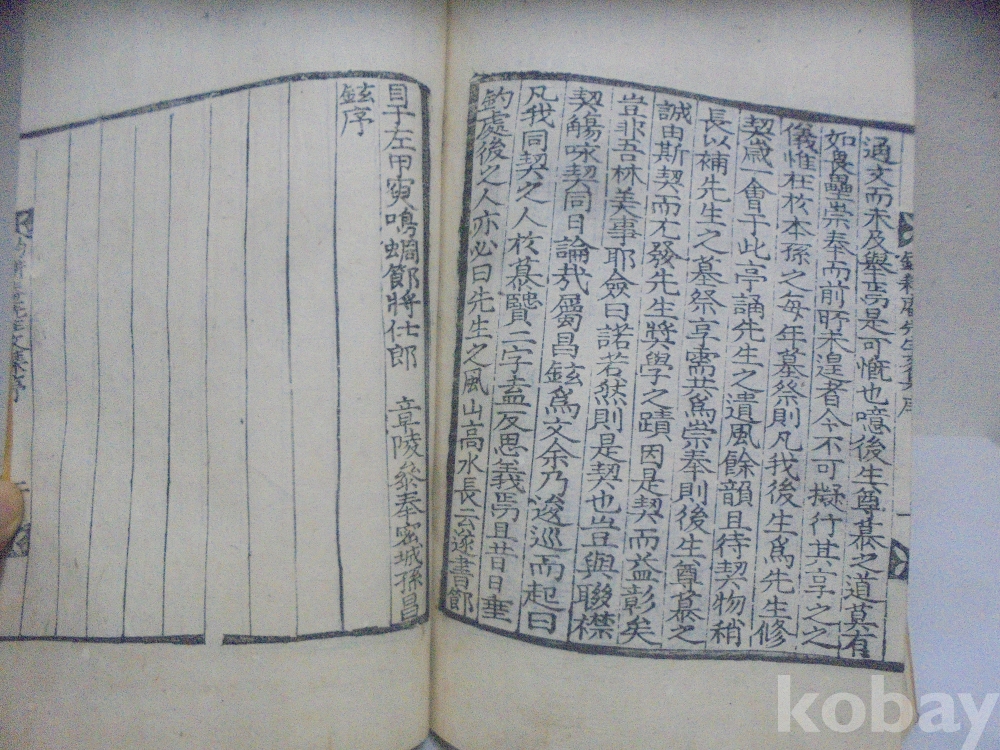 通文而未及擧焉是可慨也噫後生尊慕之道莫有
如畏壘崇奉而前旴未遑者今不可擬行其享之之
儀惟在於本孫之每年墓祭則凡我後生爲先生修
契歲一會于此亭誦先生之遺風餘韻且待契物稍
長以補先生之墓祭享需共爲崇奉則後生尊慕之
誠由斯契而不發先生奬學之蹟因是契而益彰矣
豈非吾林美事耶僉曰諾若然則是契也豈與聯襟
契觴咏契同日論哉屬昌鉉爲文余乃逡巡而起曰
凡我同契之人於慕賢二字盍反思義焉且昔日垂
釣處後之人亦必曰先生之風山高水長云遂書節
目于左甲寅鳴蜩節將仕郎 章陵參奉密城孫昌
鉉序
kobay